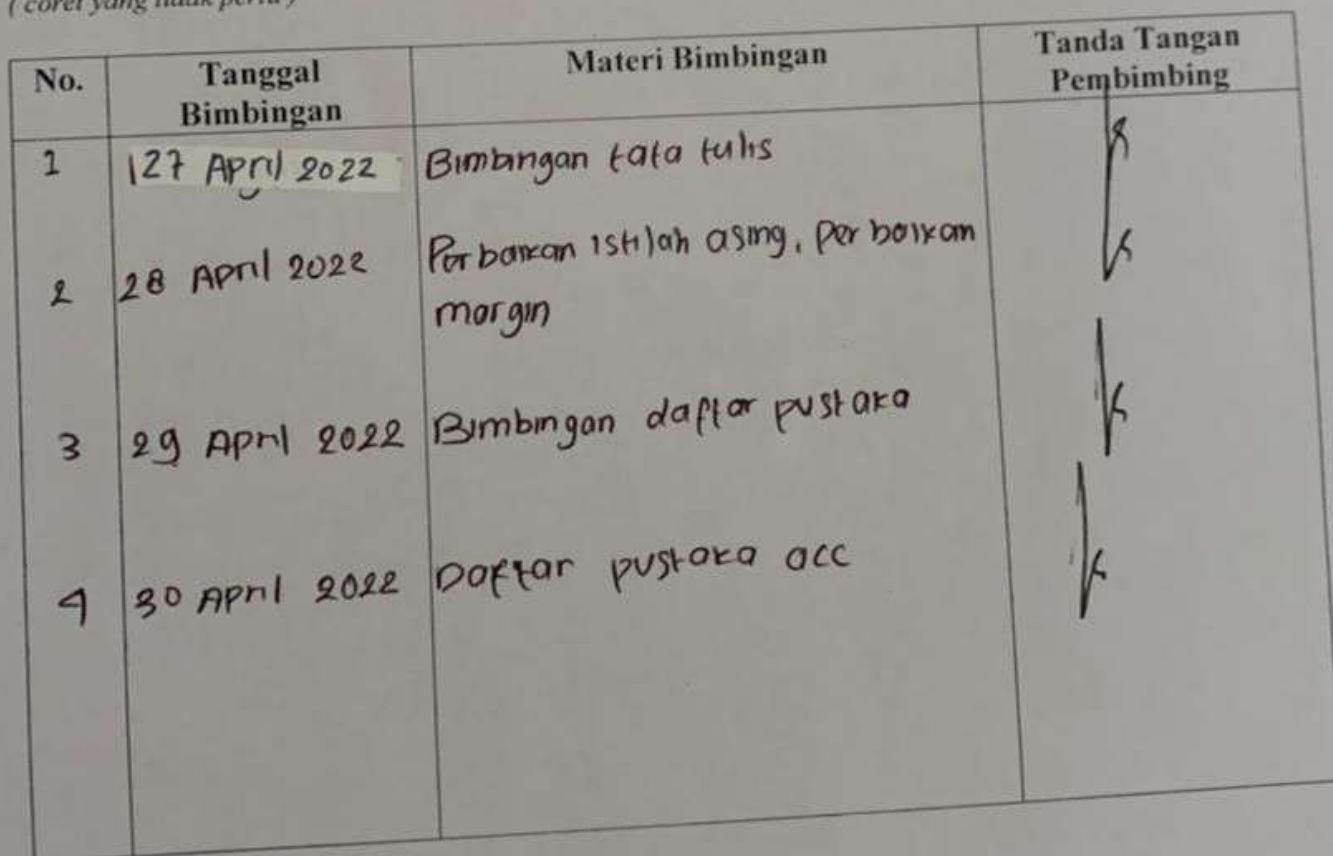 ( coret yang tidak perlu )
No. Tanggal Bimbingan Materi Bimbingan Tanda Tangan Pembimbing
1 27 April 2022 Bimbingan tata tulis
2 28 April 2022 Perbaikan istilah asing, perbaikan
margin
3 29 April 2022 Bimbingan daftar pustaka
4 30 April 2022 Daftar pustaka acc